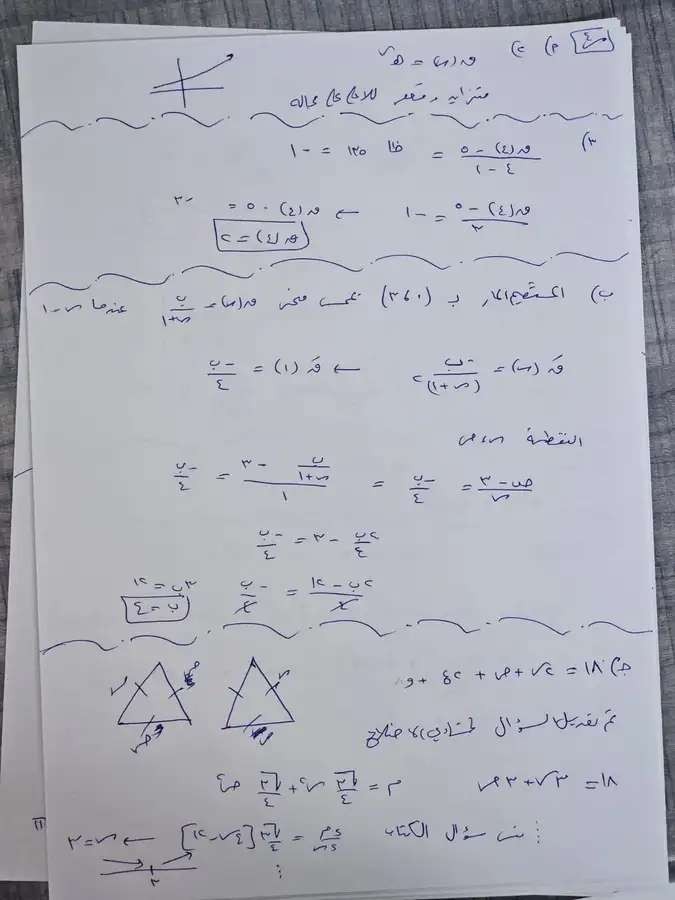 س٤ ٢) ٢) ق(س) = هـ^س
متزايد ومقعر للأعلى على مجاله
٣) (ق(٤) - ٥)/(٤ - ١) = ظا ١٣٥ = -١
(ق(٤) - ٥)/٣ = -١ ← ق(٤) - ٥ = -٣
ق(٤) = ٢
ب) المستقيم المار بـ (٣،٠) يمس منحنى ق(س) = ب/(س+١) عندما س=١
قَ(س) = -ب/(س+١)^٢ ← قَ(١) = -ب/٤
النقطة س، ص
(ص - ٣)/س = -ب/٤ = (ب/(س+١) - ٣)/١ = -ب/٤
٢ب/٤ - ٣ = -ب/٤
(٢ب - ١٢)/٤ = -ب/٤ ٣ب = ١٢
ب = ٤
جـ) ١٨ = ٢س + ص +
تم تعديل السؤال لمتساوي الأضلاع
١٨ = ٣س + ٣ص م = √٣/٤ س^٢ + √٣/٤ ص^٢
⋮ نفس سؤال الكتاب دم/دس = √٣/٤ [٤س - ١٢] ← س = ٣
٣ ⋮